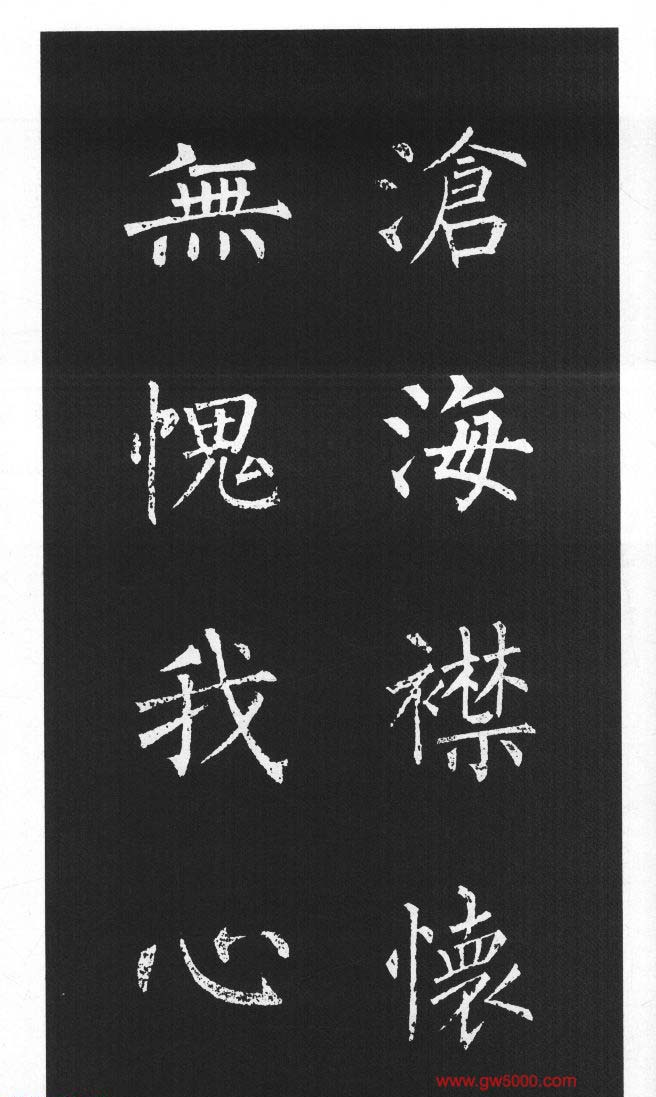 滄海襟懷
無愧我心
www.gw5000.com